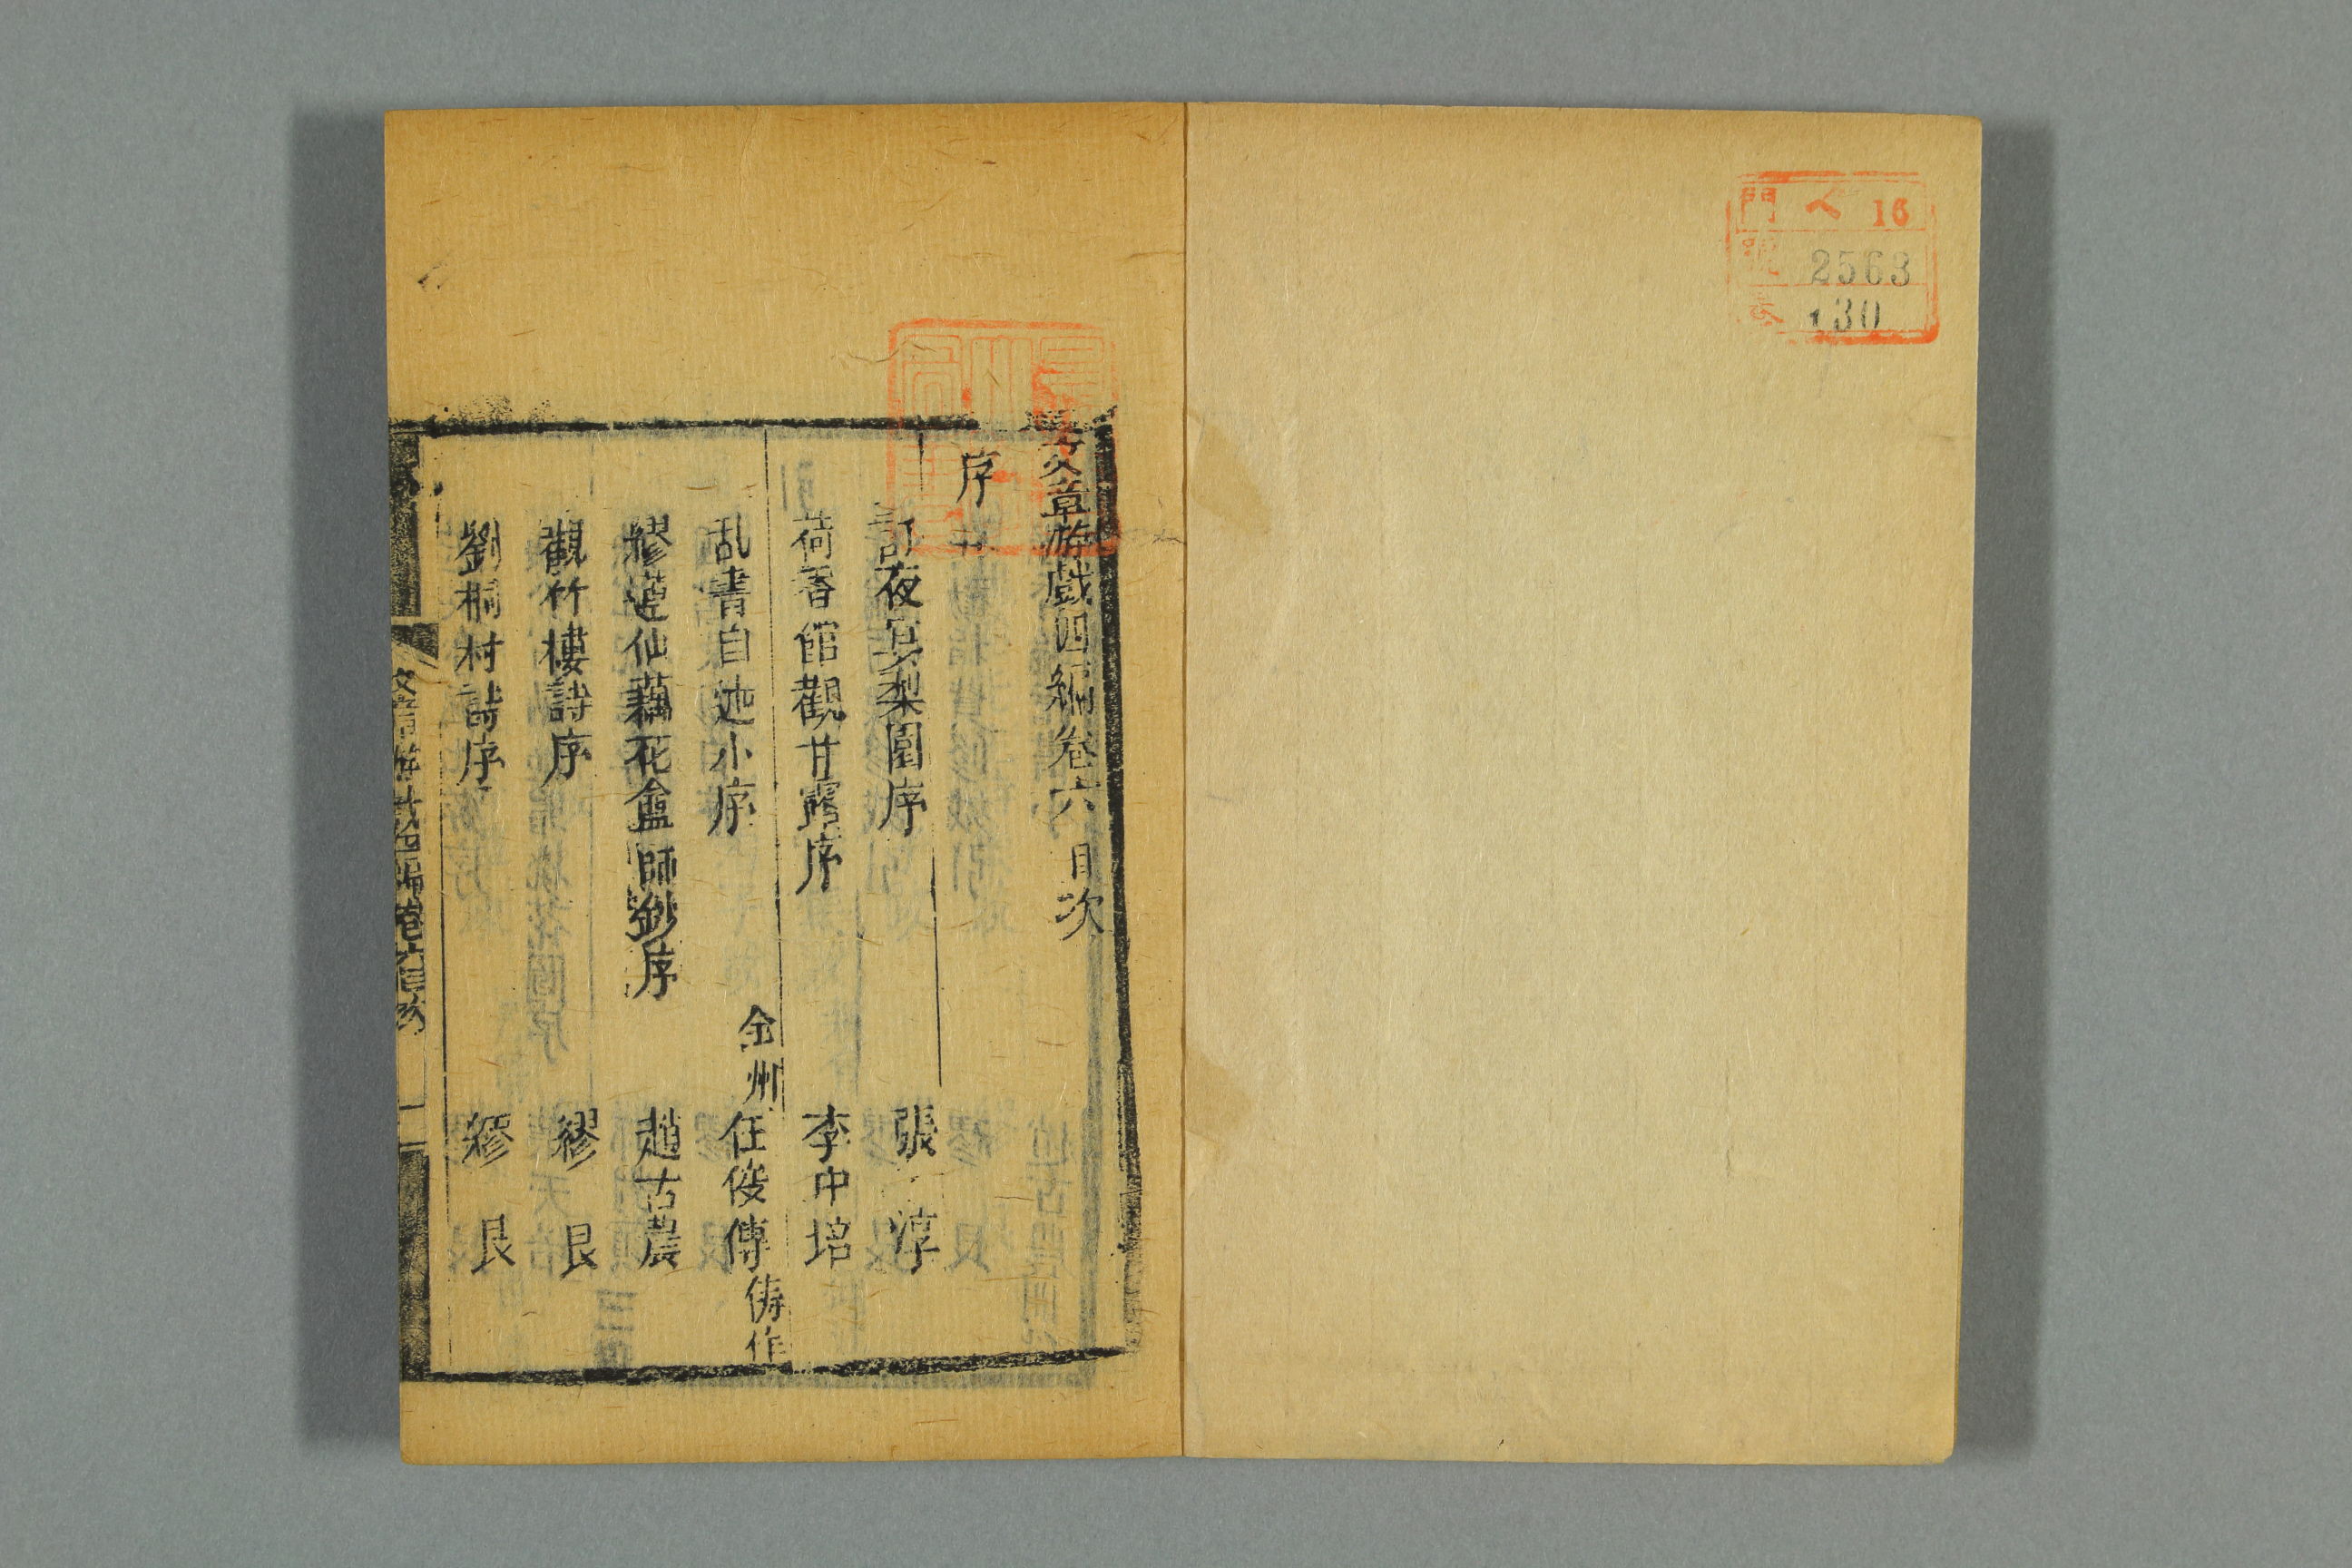 門 ヘ 16
號 2563
卷 130
文章游戲四編卷六 目次
序
訂夜宴梨園序 張淳
荷香館觀甘露序 李中培
乱書自迆小序 金州 任俊傳 儔作
繆蓮仙藕花盦師鈔序 趙古農
觀竹樓詩序 繆艮
劉桐村詩序 繆艮
文章游戲四編卷六目次 一